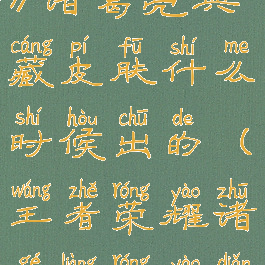 诸葛亮典
cáng pí fū shí me
藏皮肤什么
shí hòu chū de
时候出的（
wáng zhě róng yào zhū
王者荣耀诸
gé liàng róng yào diǎn